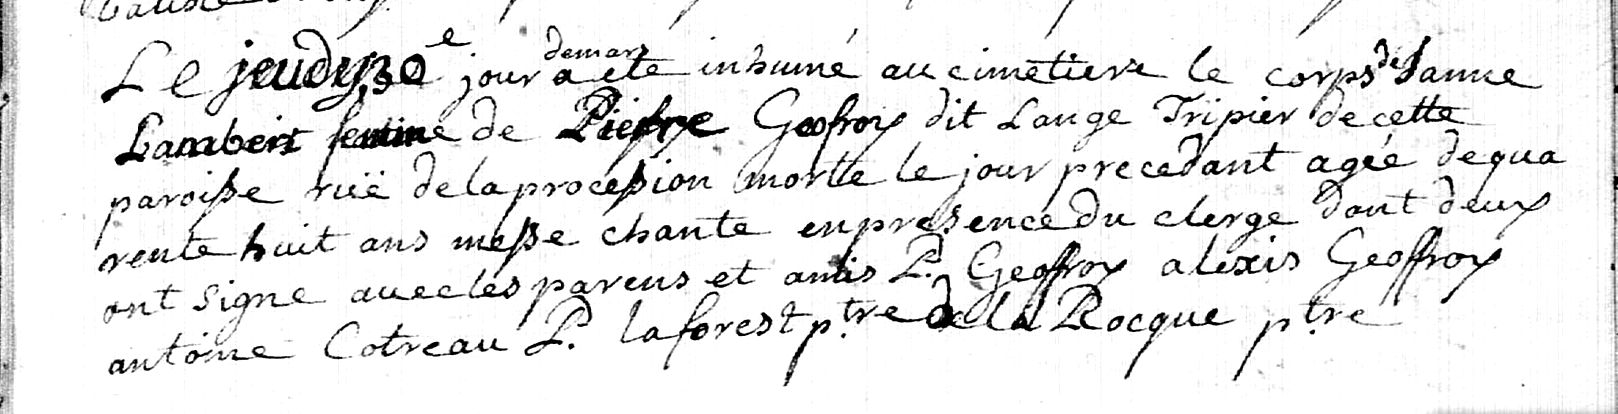 Le jeudy 30e jour de mars a ete inhumé au cimetiere le corps de Janne
Lambert femme de Pierre Geofroy dit Lange Tripier de cette
paroisse ruë de la procession morte le jour precedant agée de qua
rente huit ans messe chante en presence du clerge dont deux
ont signe avec les parens et amis P. Geoffroy alexis Geoffroy
antoine Cotreau P. laforest ptre de la Rocque ptre